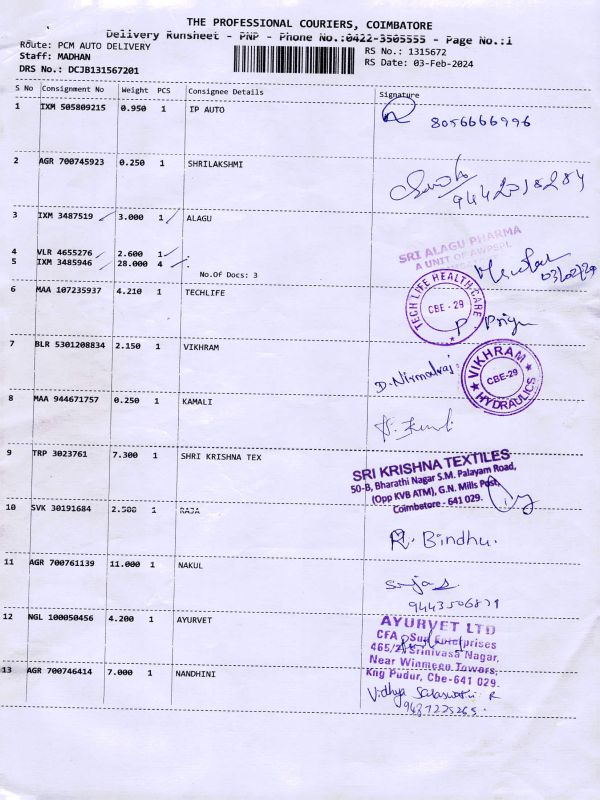 THE PROFESSIONAL COURIERS, COIMBATORE
Delivery Runsheet - PNP - Phone No.:0422-3505555 - Page No.:1
Route: PCM AUTO DELIVERY
RS No.: 1315672
Staff: MADHAN
RS Date: 03-Feb-2024
DRS No.: DCJB131567201
S No Consignment No Weight PCS Consignee Details Signature
1 IXM 505809215 0.950 1 IP AUTO
8056666996
2 AGR 700745923 0.250 1 SHRILAKSHMI
9442018284
3 IXM 3487519 3.000 1 ALAGU
SRI ALAGU PHARMA
A UNIT OF AWPSPL
4 VLR 4655276 2.600 1
5 IXM 3485946 28.000 4
No.Of Docs: 3
03/02/24
6 MAA 107235937 4.210 1 TECHLIFE
TECH LIFE HEALTH CARE
CBE - 29
P. Priya
7 BLR 5301208834 2.150 1 VIKHRAM
VIKHRAM HYDRAULICS
CBE-29
D. Nirmalraj
8 MAA 944671757 0.250 1 KAMALI
9 TRP 3023761 7.300 1 SHRI KRISHNA TEX
SRI KRISHNA TEXTILES
50-B, Bharathi Nagar S.M. Palayam Road,
(Opp KVB ATM), G.N. Mills Post,
Coimbatore - 641 029.
10 SVK 30191684 2.500 1 RAJA
R. Bindhu.
11 AGR 700761139 11.000 1 NAKUL
9443506871
12 NGL 100050456 4.200 1 AYURVET
AYURVET LTD
CFA Sun Enterprises
465/2 Srinivasa Nagar,
Near Winmeen Towers,
Kng Pudur, Cbe-641 029.
13 AGR 700746414 7.000 1 NANDHINI
Vidhya Saraswathi R
9487225265